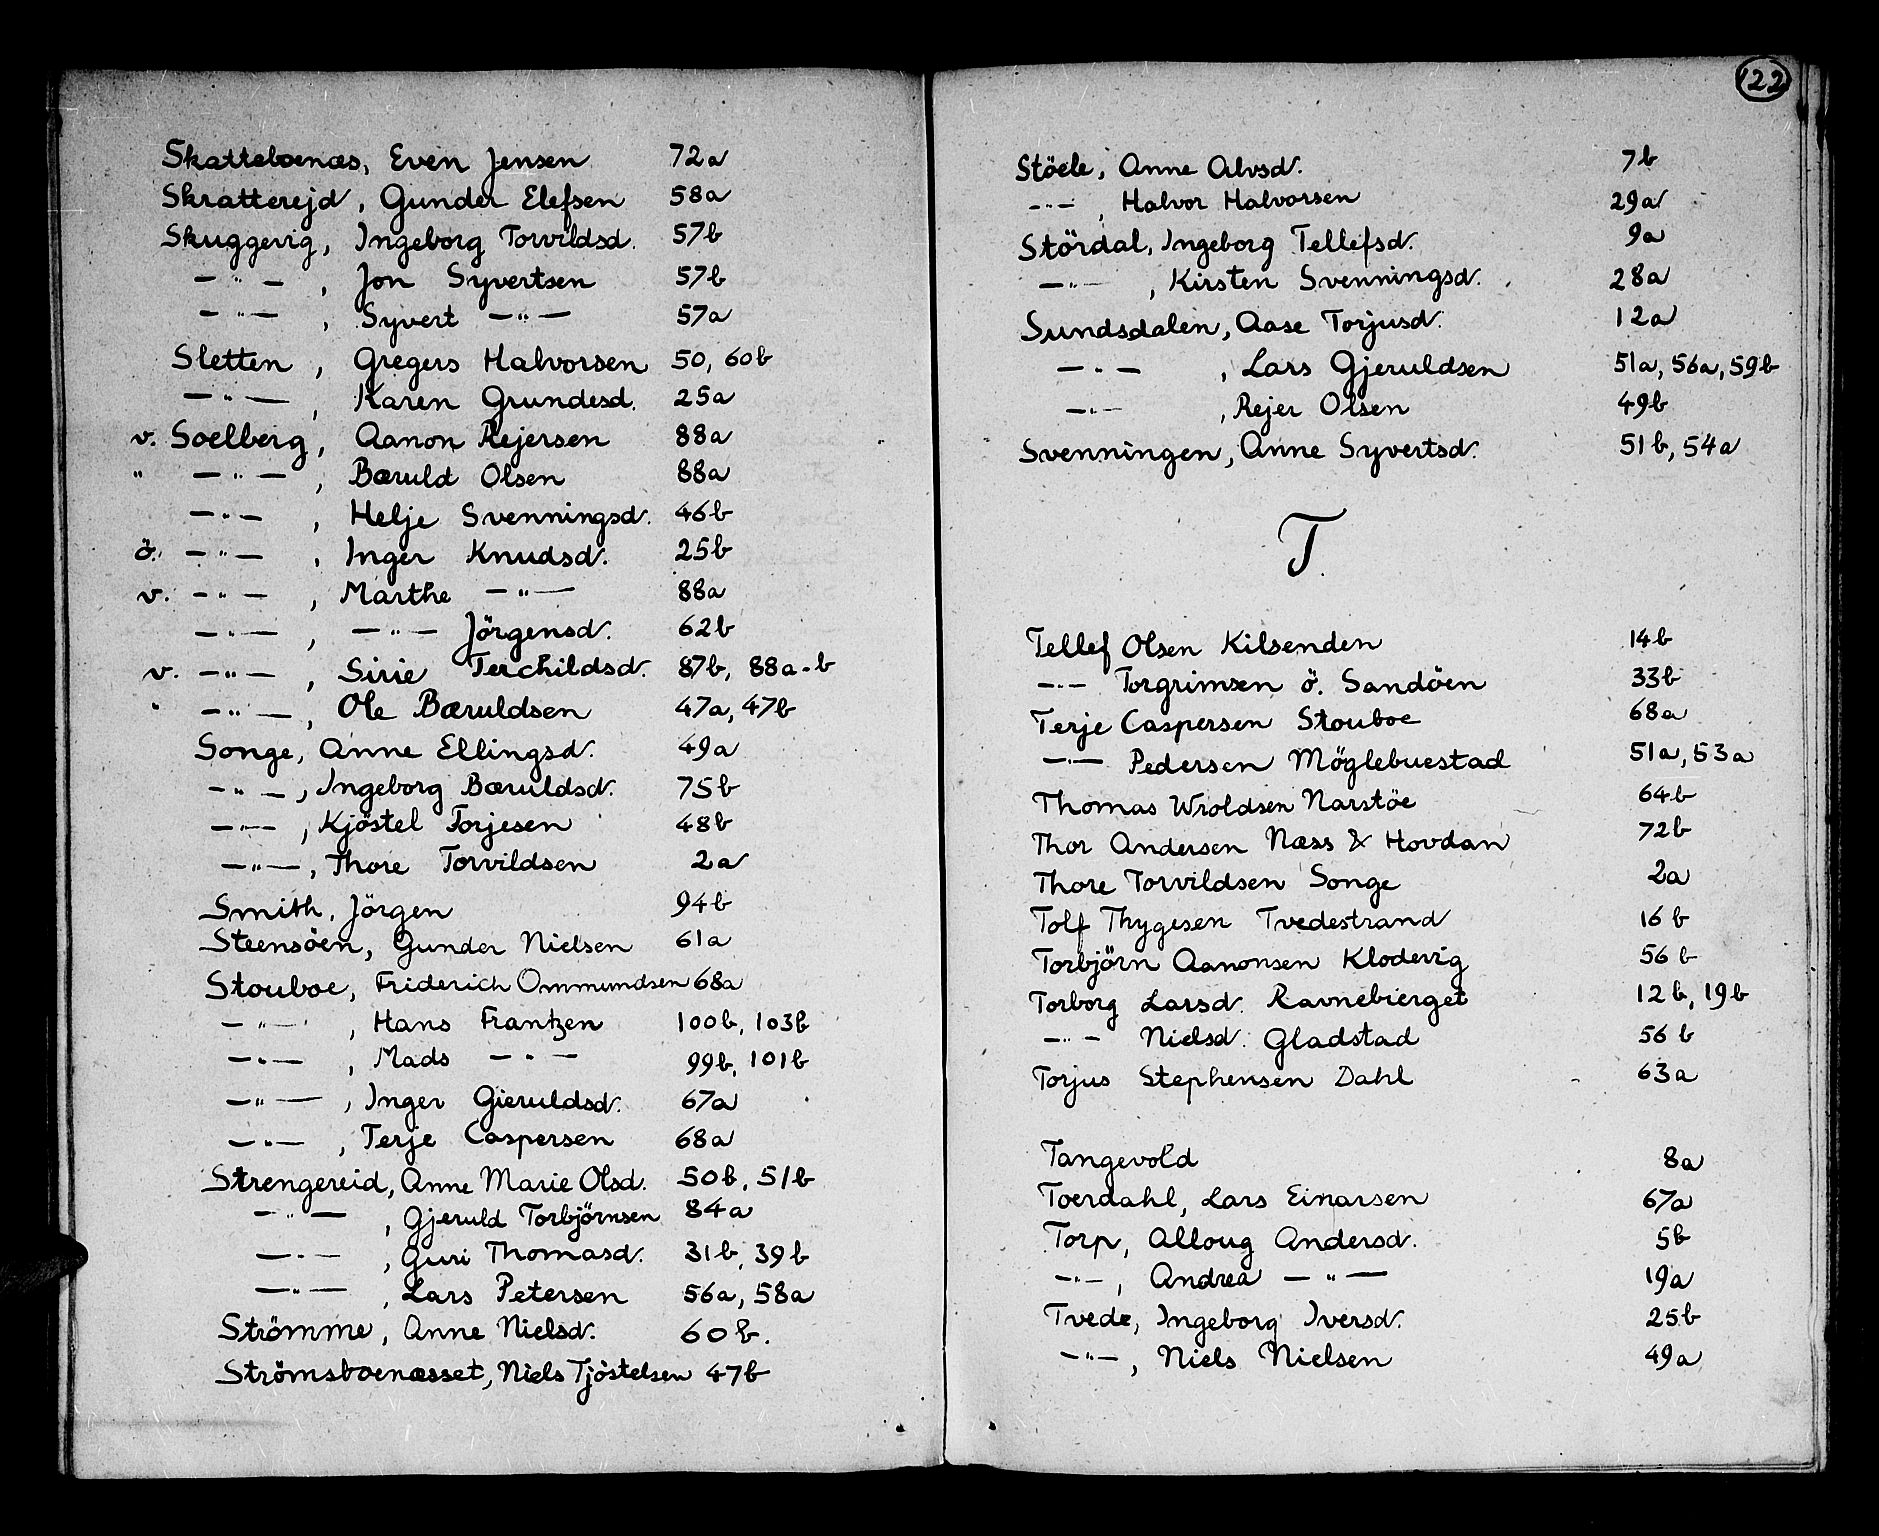 Skatteboenæs, Even Jensen 72a
Skratterejd, Gunder Elefsen 58a
Skuggevig, Ingeborg Torvildsd. 57b
—"—, Jon Syvertsen 57b
—"—, Syvert —"— 57a
Sletten, Gregers Halvorsen 50, 60b
—"—, Karen Grundesd. 25a
v. Soelberg, Aanon Rejersen 88a
" —"—, Bæruld Olsen 88a
—"—, Helje Svenningsd. 46b
ö. —"—, Inger Knudsd. 25b
v. —"—, Marthe —"— 88a
—"—, —"— Jörgensd. 62b
v. —"—, Sirie Terchildsd. 87b, 88a-b
" —"—, Ole Bæruldsen 47a, 47b
Songe, Anne Ellingsd. 49a
—"—, Ingeborg Bæruldsd. 75b
—"—, Kjöstel Torjesen 48b
—"—, Thore Torvildsen 2a
Smith, Jörgen 94b
Steensöen, Gunder Nielsen 61a
Stouboe, Friderich Ommundsen 68a
—"—, Hans Frantzen 100b, 103b
—"—, Mads —"— 99b, 101b
—"—, Inger Gieruldsd. 67a
—"—, Terje Caspersen 68a
Strengereid, Anne Marie Olsd. 50b, 51b
—"—, Gjeruld Torbjörnsen 84a
—"—, Guri Thomasd. 31b, 39b
—"—, Lars Petersen 56a, 58a
Strömme, Anne Nielsd. 60b.
Strömsboenæsset, Niels Tjöstelsen 47b
122
Stöele, Anne Alvsd. 7b
—"—, Halvor Halvorsen 29a
Stördal, Ingeborg Tellefsd. 9a
—"—, Kirsten Svenningsd. 28a
Sundsdalen, Aase Torjusd. 12a
—"—, Lars Gjeruldsen 51a, 56a, 59b
—"—, Rejer Olsen 49b
Svenningen, Anne Syvertsd. 51b, 54a
T.
Tellef Olsen Kilsenden 14b
—"— Torgrimsen ö. Sandöen 33b
Terje Caspersen Stouboe 68a
—"— Pedersen Möglebuestad 51a, 53a
Thomas Wroldsen Narstöe 64b
Thor Andersen Næss & Hovdan 72b
Thore Torvildsen Songe 2a
Tolf Thygesen Tvedestrand 16b
Torbjörn Aanonsen Klodevig 56b
Torborg Larsd. Ravnebierget 12b, 19b
—"— Nielsd. Gladstad 56b
Torjus Stephensen Dahl 63a
Tangevold 8a
Toerdahl, Lars Einarsen 67a
Torp, Alloug Andersd. 5b
—"—, Andrea —"— 19a
Tvede, Ingeborg Iversd. 25b
—"—, Niels Nielsen 49a